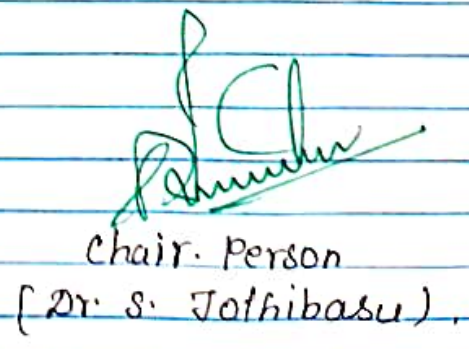 chair. person
(Dr. S. Jothibasu).